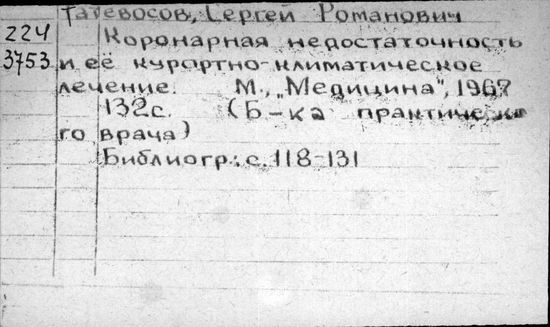 Татевосов, Сергей Романович
224
Коронарная недостаточность
3753
и её курортно-климатическое
лечение. М., „Медицина", 1967
132с. (Б-ка практическо
го врача)
Библиогр.: с. 118-131